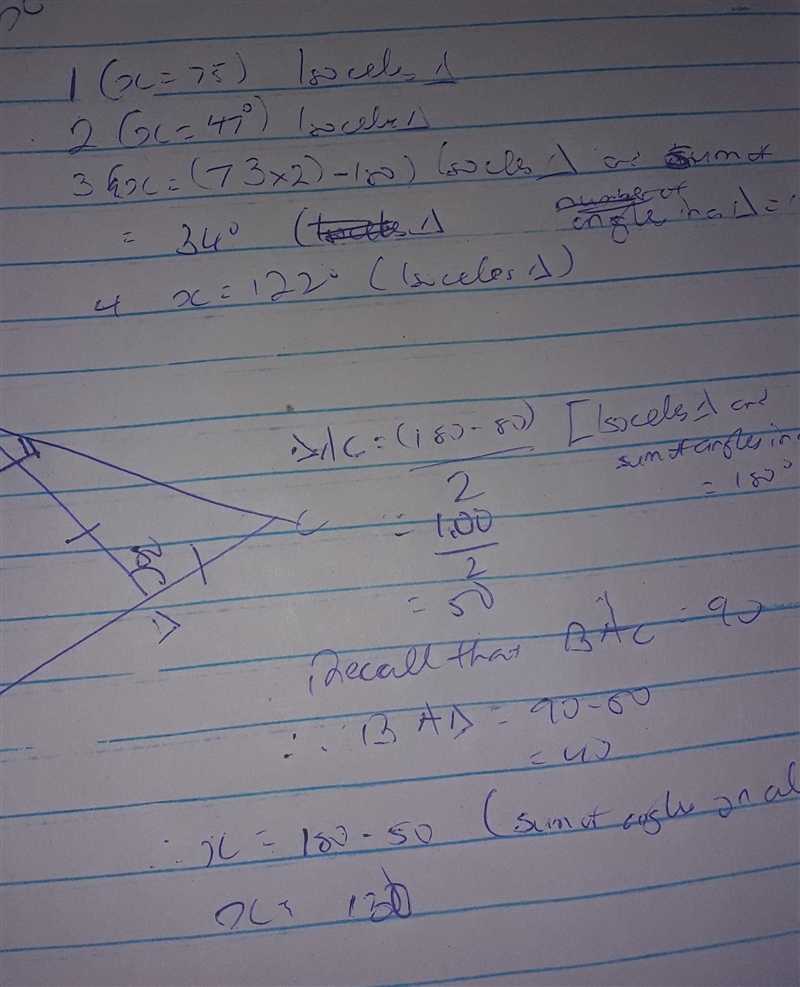 1 (x = 75) Isoceles Δ
2 (x = 47°) Isoceles Δ
3 x = (73×2) - 180) Isocles Δ and Sum of
number of
= 34° ( Δ angle in a Δ =
4 x = 122° (Isoceles Δ)
DAC = (180 - 80) [Isoceles Δ and
sum of angles in
2 = 180°
C
= 100
2
80
= 50
D
Recall that BAC = 90
∴ BAD = 90 - 50
= 40
∴ x = 180 - 50 (sum of angle on a
x = 130